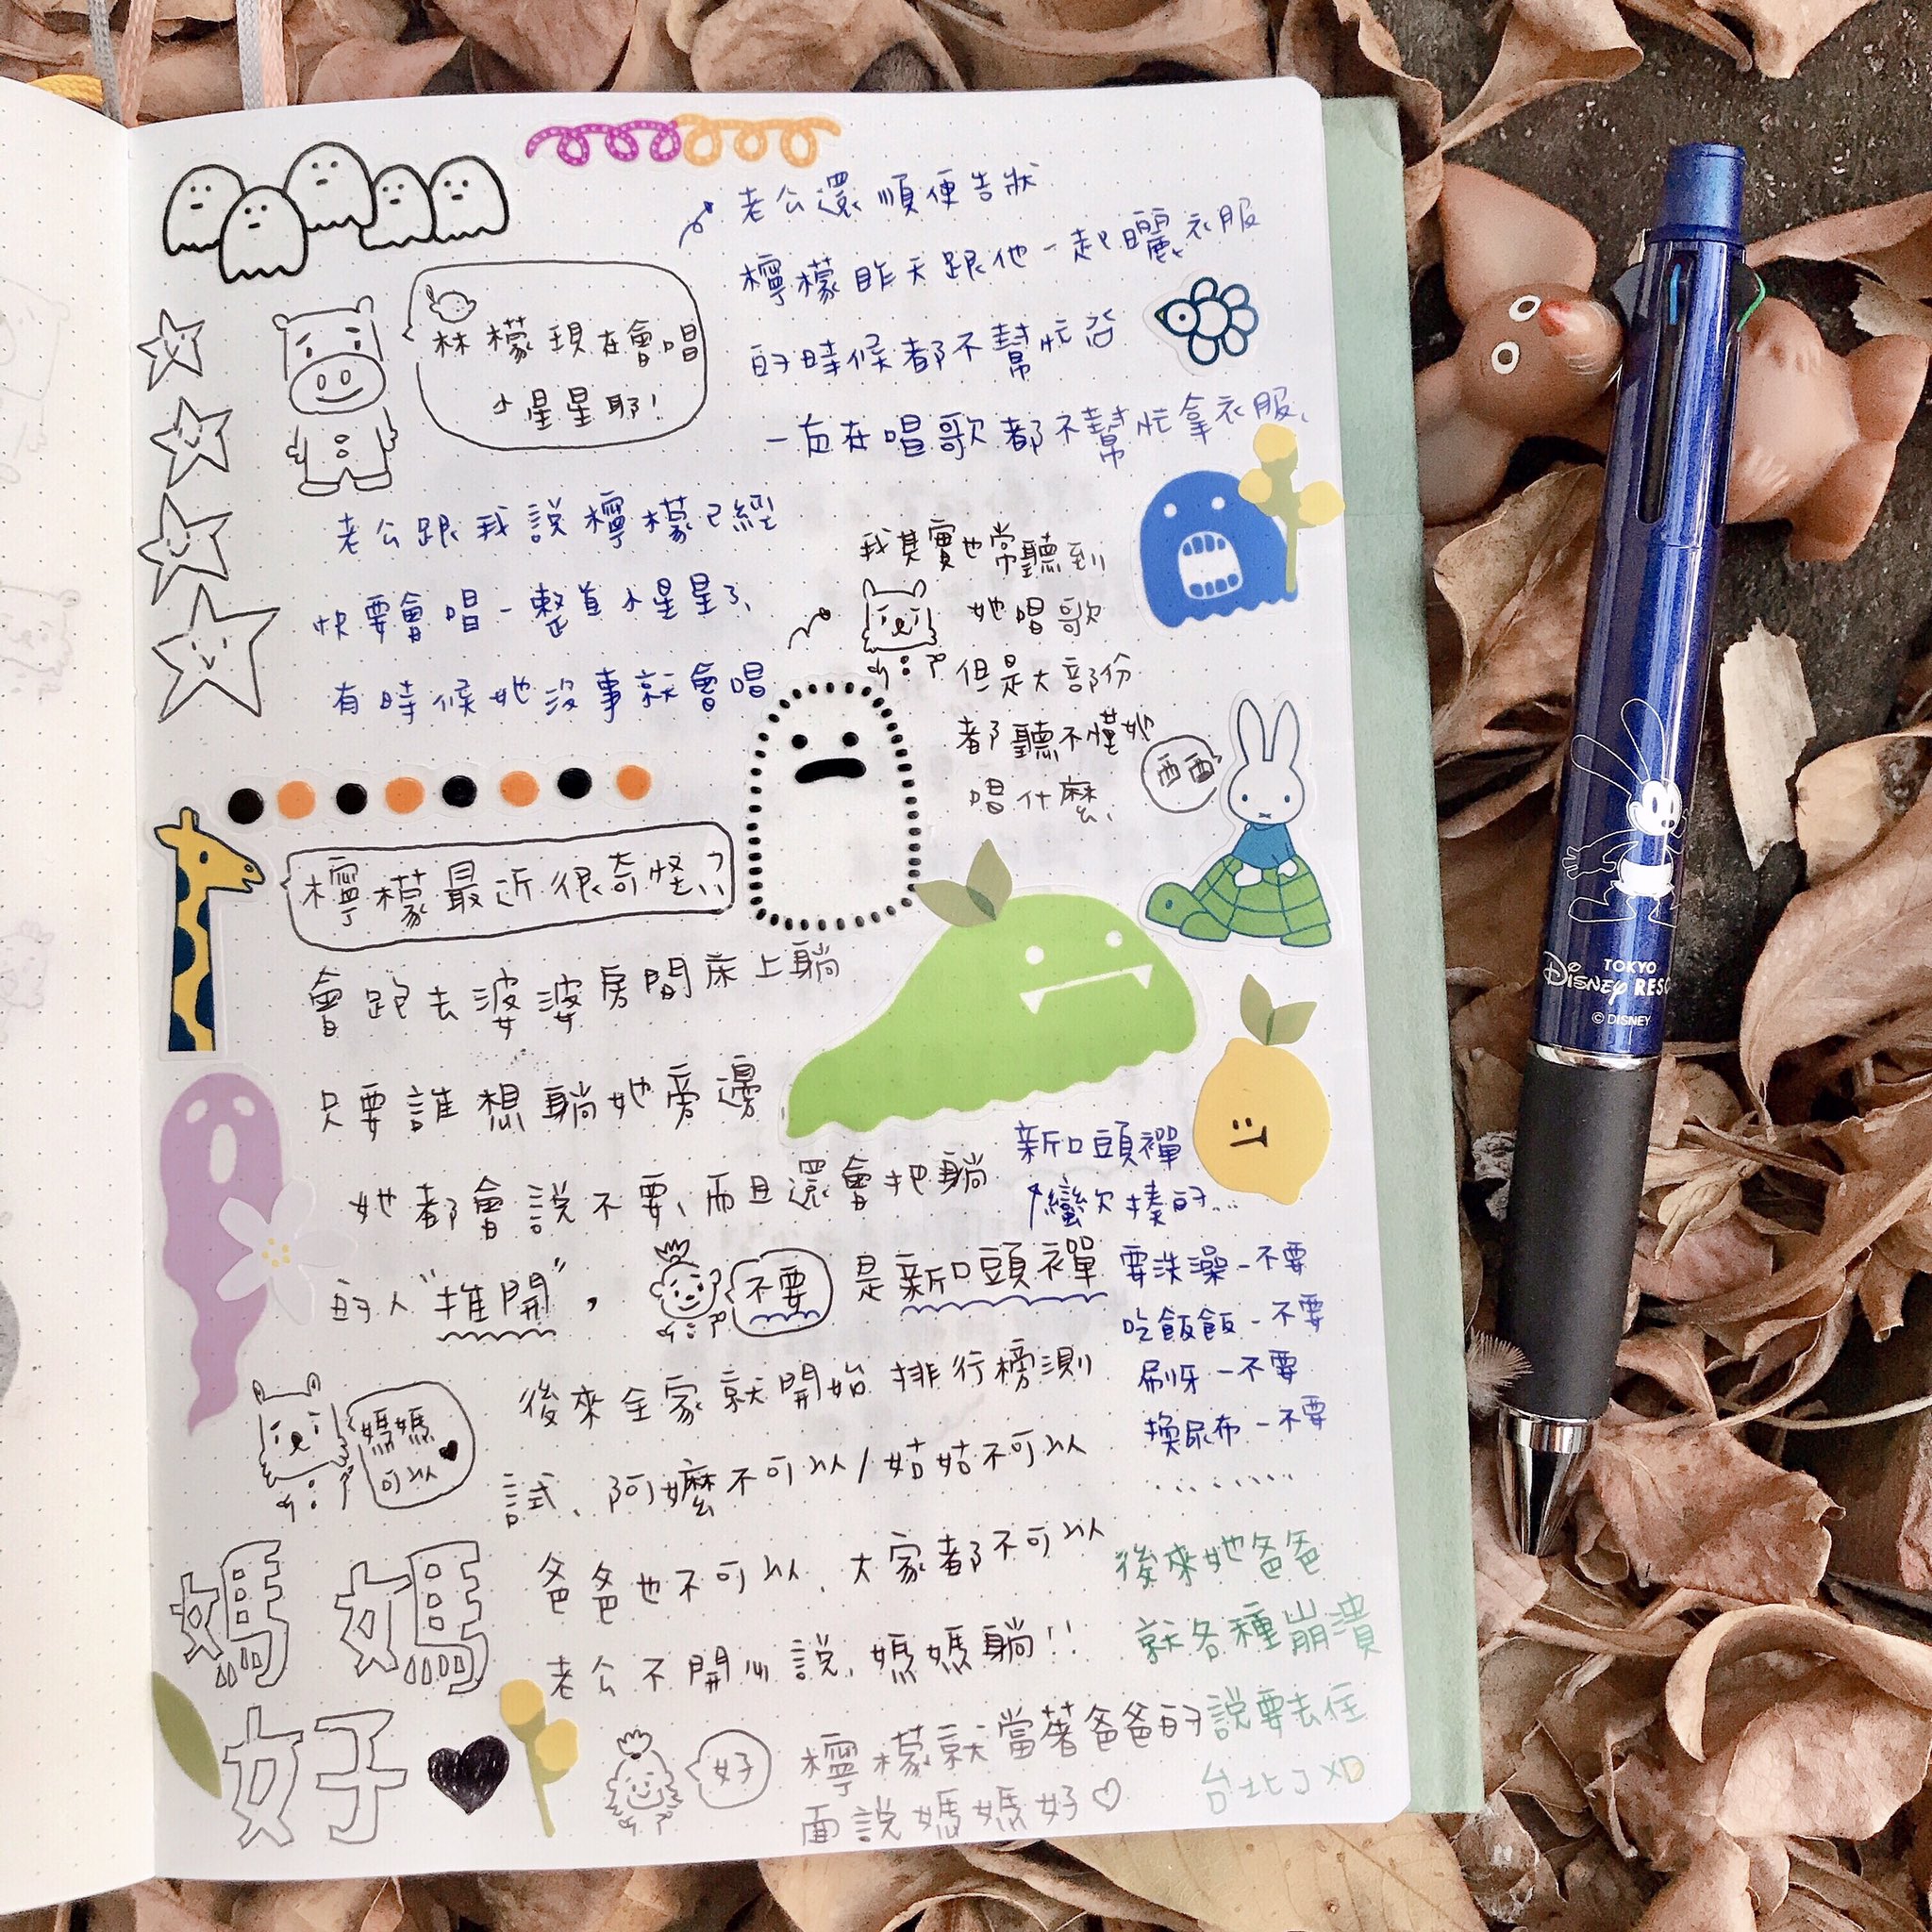 檸檬現在會唱
小星星耶!
老公還順便告狀
檸檬昨天跟他一起曬衣服
的時候都不幫忙
一直在唱歌都不幫忙拿衣服、
老公跟我說檸檬已經
快要會唱一整首小星星了、
有時候她沒事就會唱
我其實也常聽到
她唱歌
但是大部份
都聽不懂她
唱什麼、
西西
檸檬最近很奇怪??
會跑去婆婆房間床上躺
只要誰想躺她旁邊
她都會說不要、而且還會把躺
的人"推開",
不要
是新口頭禪
新口頭禪
蠻欠揍的...
要洗澡-不要
吃飯飯-不要
刷牙-不要
換尿布-不要
........
媽媽
可以
後來全家就開始排行榜測
試、阿嬤不可以/姑姑不可以
爸爸也不可以、大家都不可以
老公不開心說、媽媽躺!!
媽媽
好
好
檸檬就當著爸爸的
面說媽媽好♡
後來她爸爸
就各種崩潰
說要去住
台北了XD
TOKYO
Disney RESO
© DISNEY